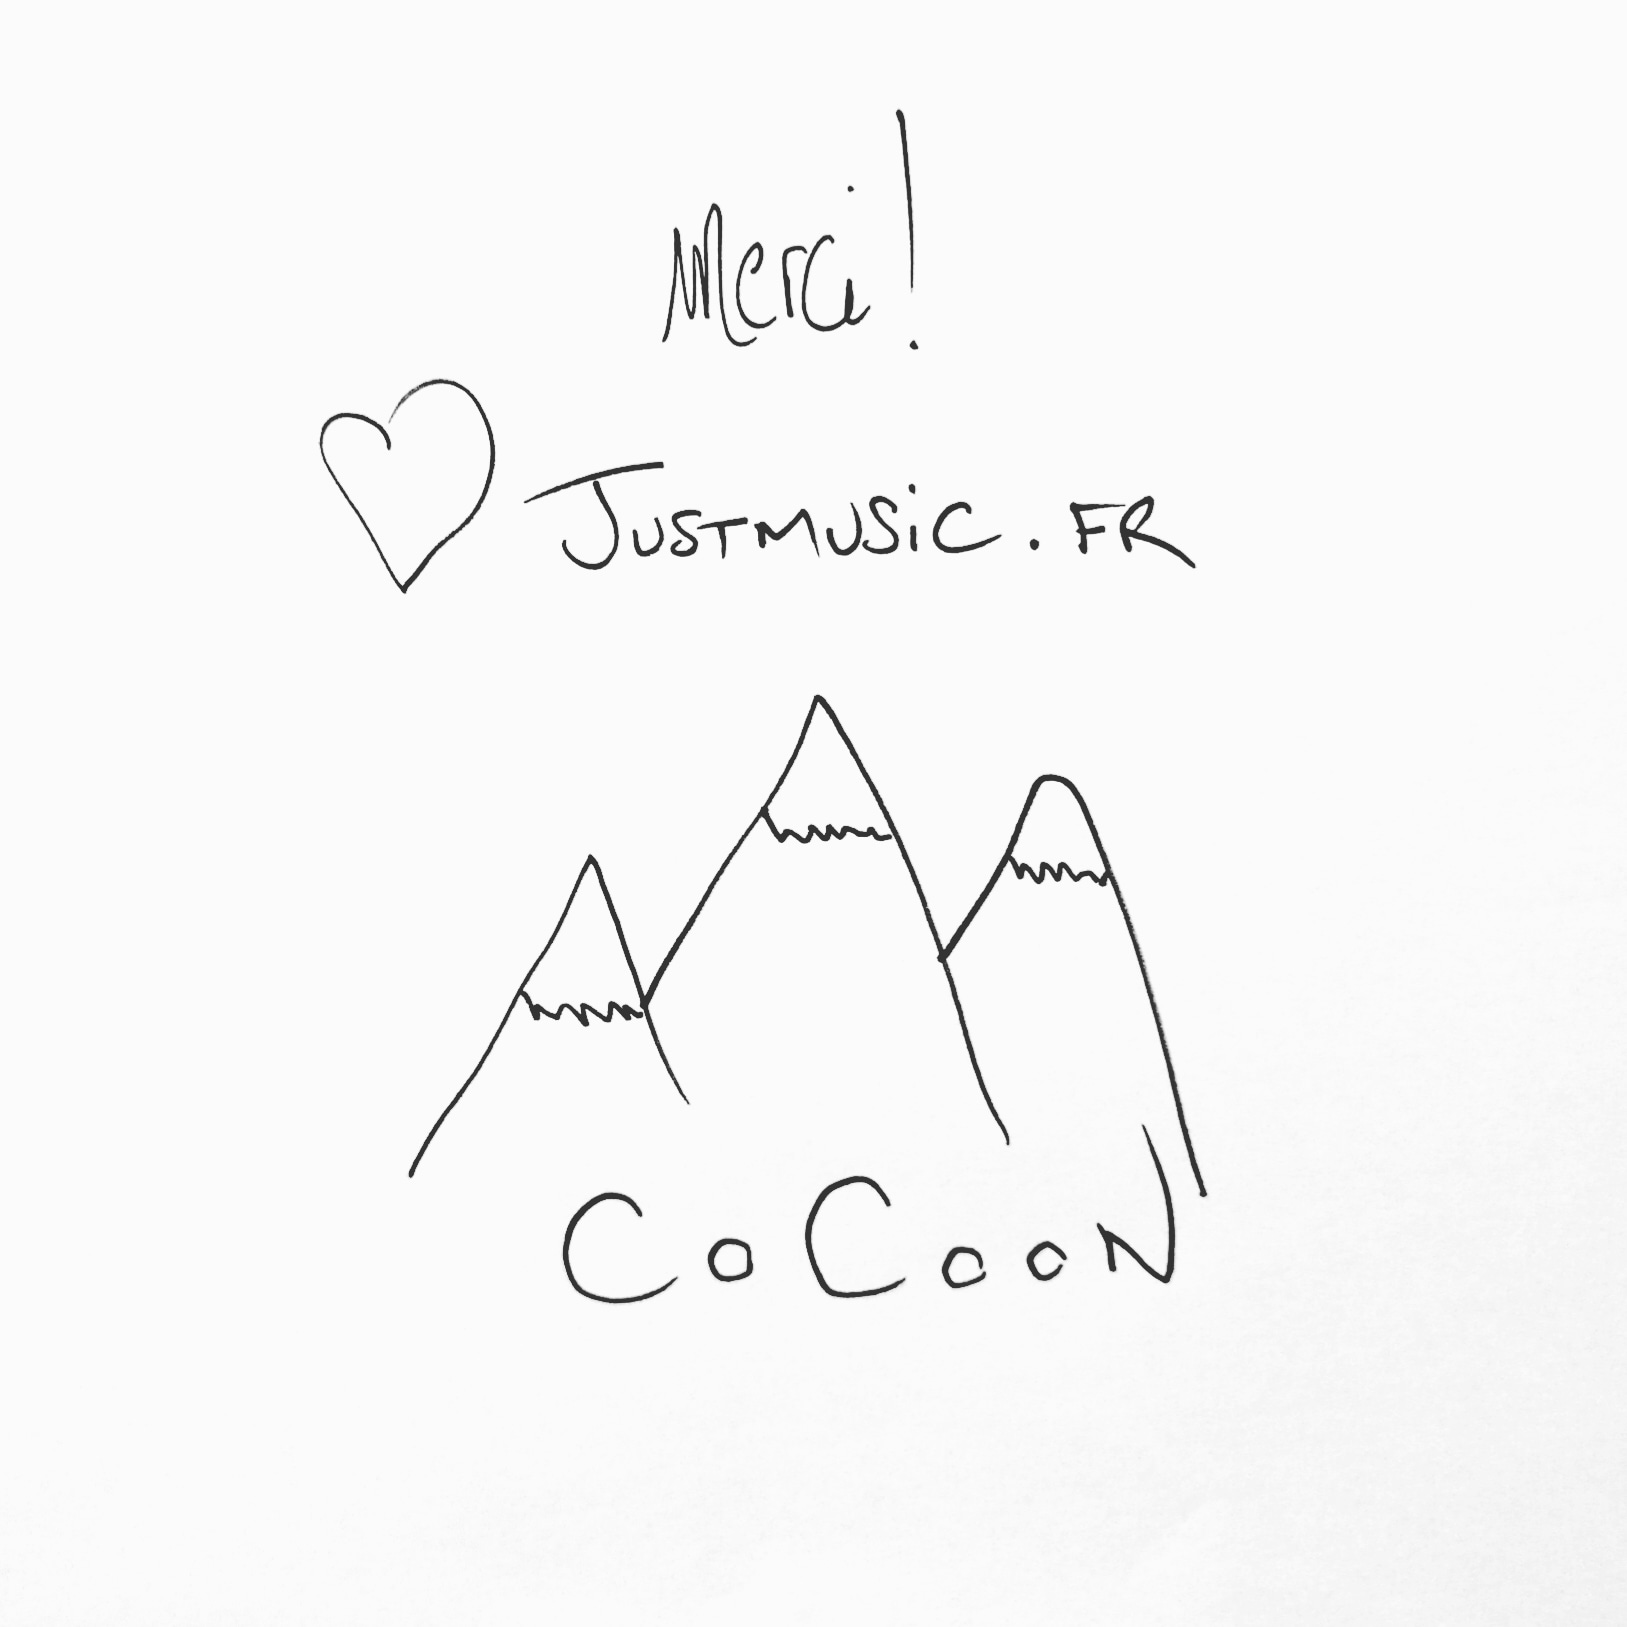 Merci !
JUSTMUSiC.FR
CoCooN